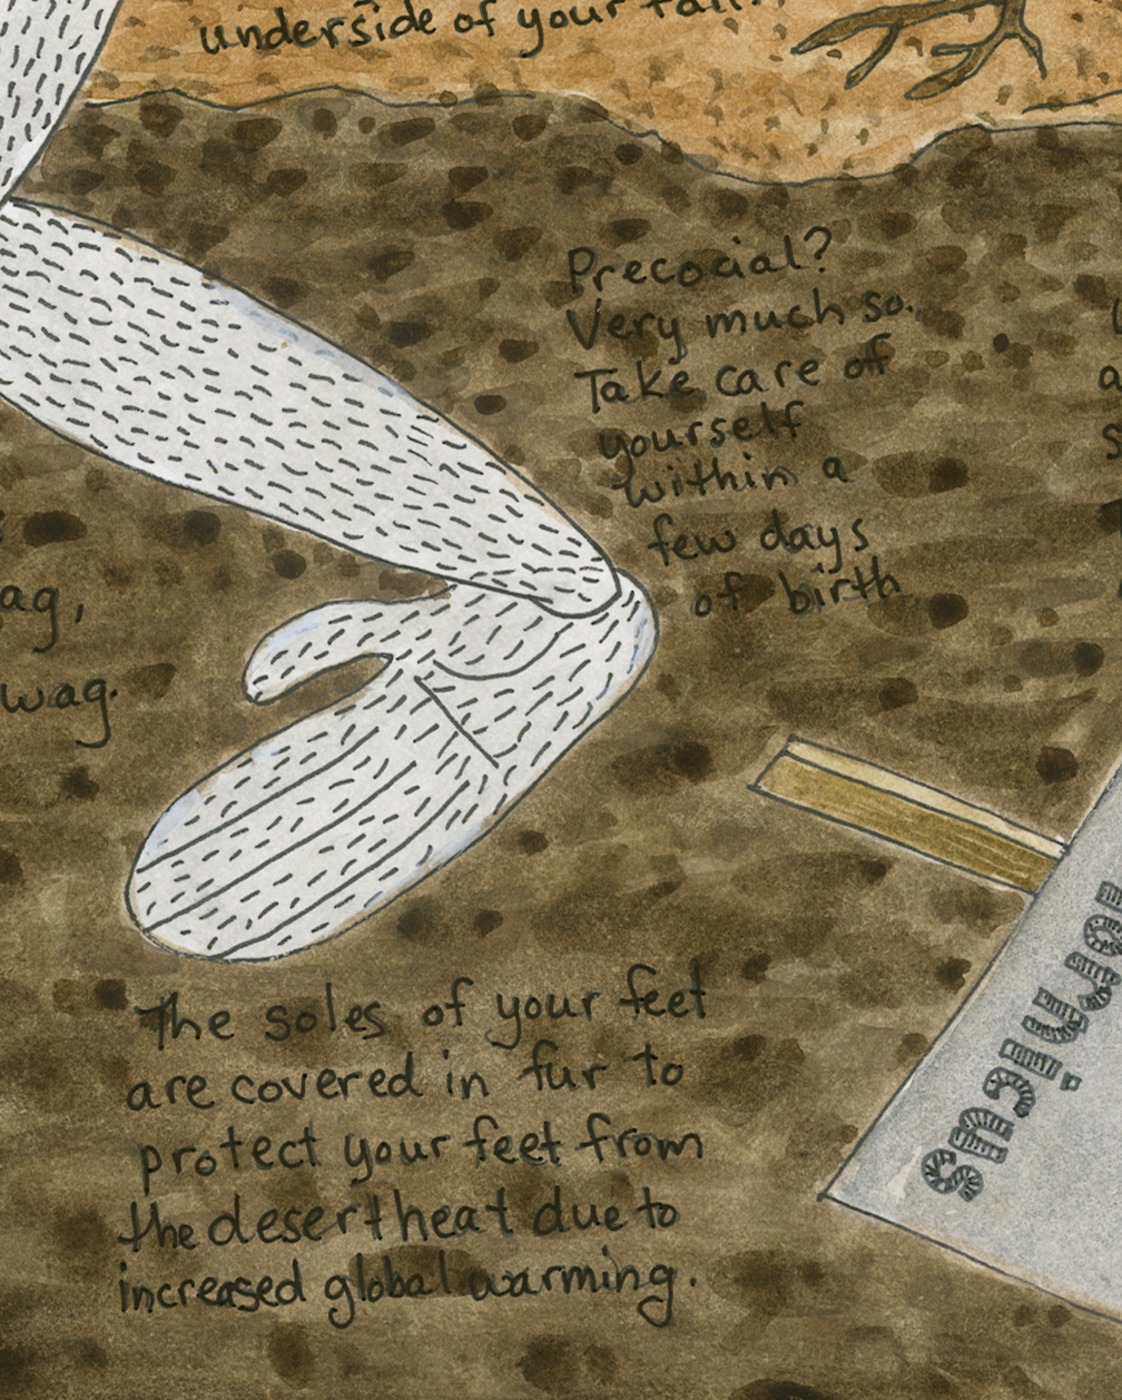 underside of your tail.
Precocial?
Very much so.
Take care of
yourself
within a
few days
of birth
ag,
wag.
The soles of your feet
are covered in fur to
protect your feet from
the desert heat due to
increased global warming.
fornicus